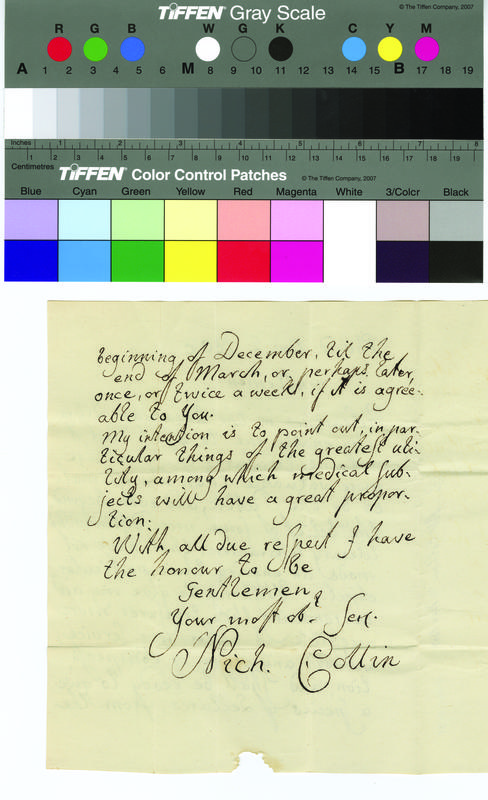 TIFFEN Gray Scale
© The Tiffen Company, 2007
R G B W G K C Y M
A 1 2 3 4 5 6 M 8 9 10 11 12 13 14 15 B 17 18 19
Inches 1 2 3 4 5 6 7 8
Centimetres 1 2 3 4 5 6 7 8 9 10 11 12 13 14 15 16 17 18 19
TIFFEN Color Control Patches © The Tiffen Company, 2007
Blue Cyan Green Yellow Red Magenta White 3/Color Black
beginning of December, til the
end of March, or perhaps later,
once, or twice a week, if it is agree-
able to You.
My intention is to point out, in par-
ticular things of the greatest uti-
lity, among which medical sub-
jects will have a great propor-
tion.
With all due respect I have
the honour to be
Gentlemen,
Your most ob.t Serv.
Nich. Collin